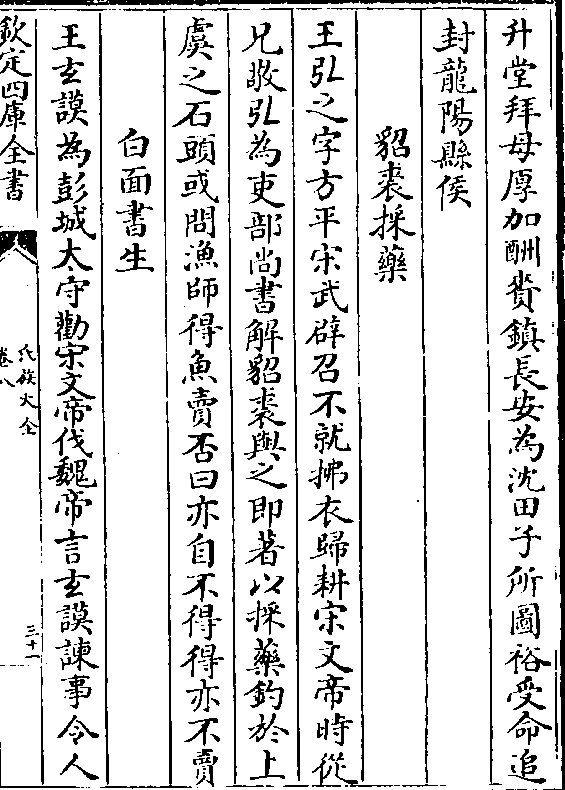 升堂拜母厚加酬赉鎮長安為沈田子所圖裕受命追
封龍陽縣侯
貂裘採藥
王弘之字方平宋武辟召不就拂衣歸耕宋文帝時從
兄敬弘為吏部尚書解貂裘與之即著以採藥釣於上
虞之石頭或問漁師得魚賣否曰亦自不得得亦不賣
白面書生
王玄謨為彭城太守勸宋文帝伐魏帝言玄謨諫事令人
欽定四庫全書
氏族大全
卷八
三十一